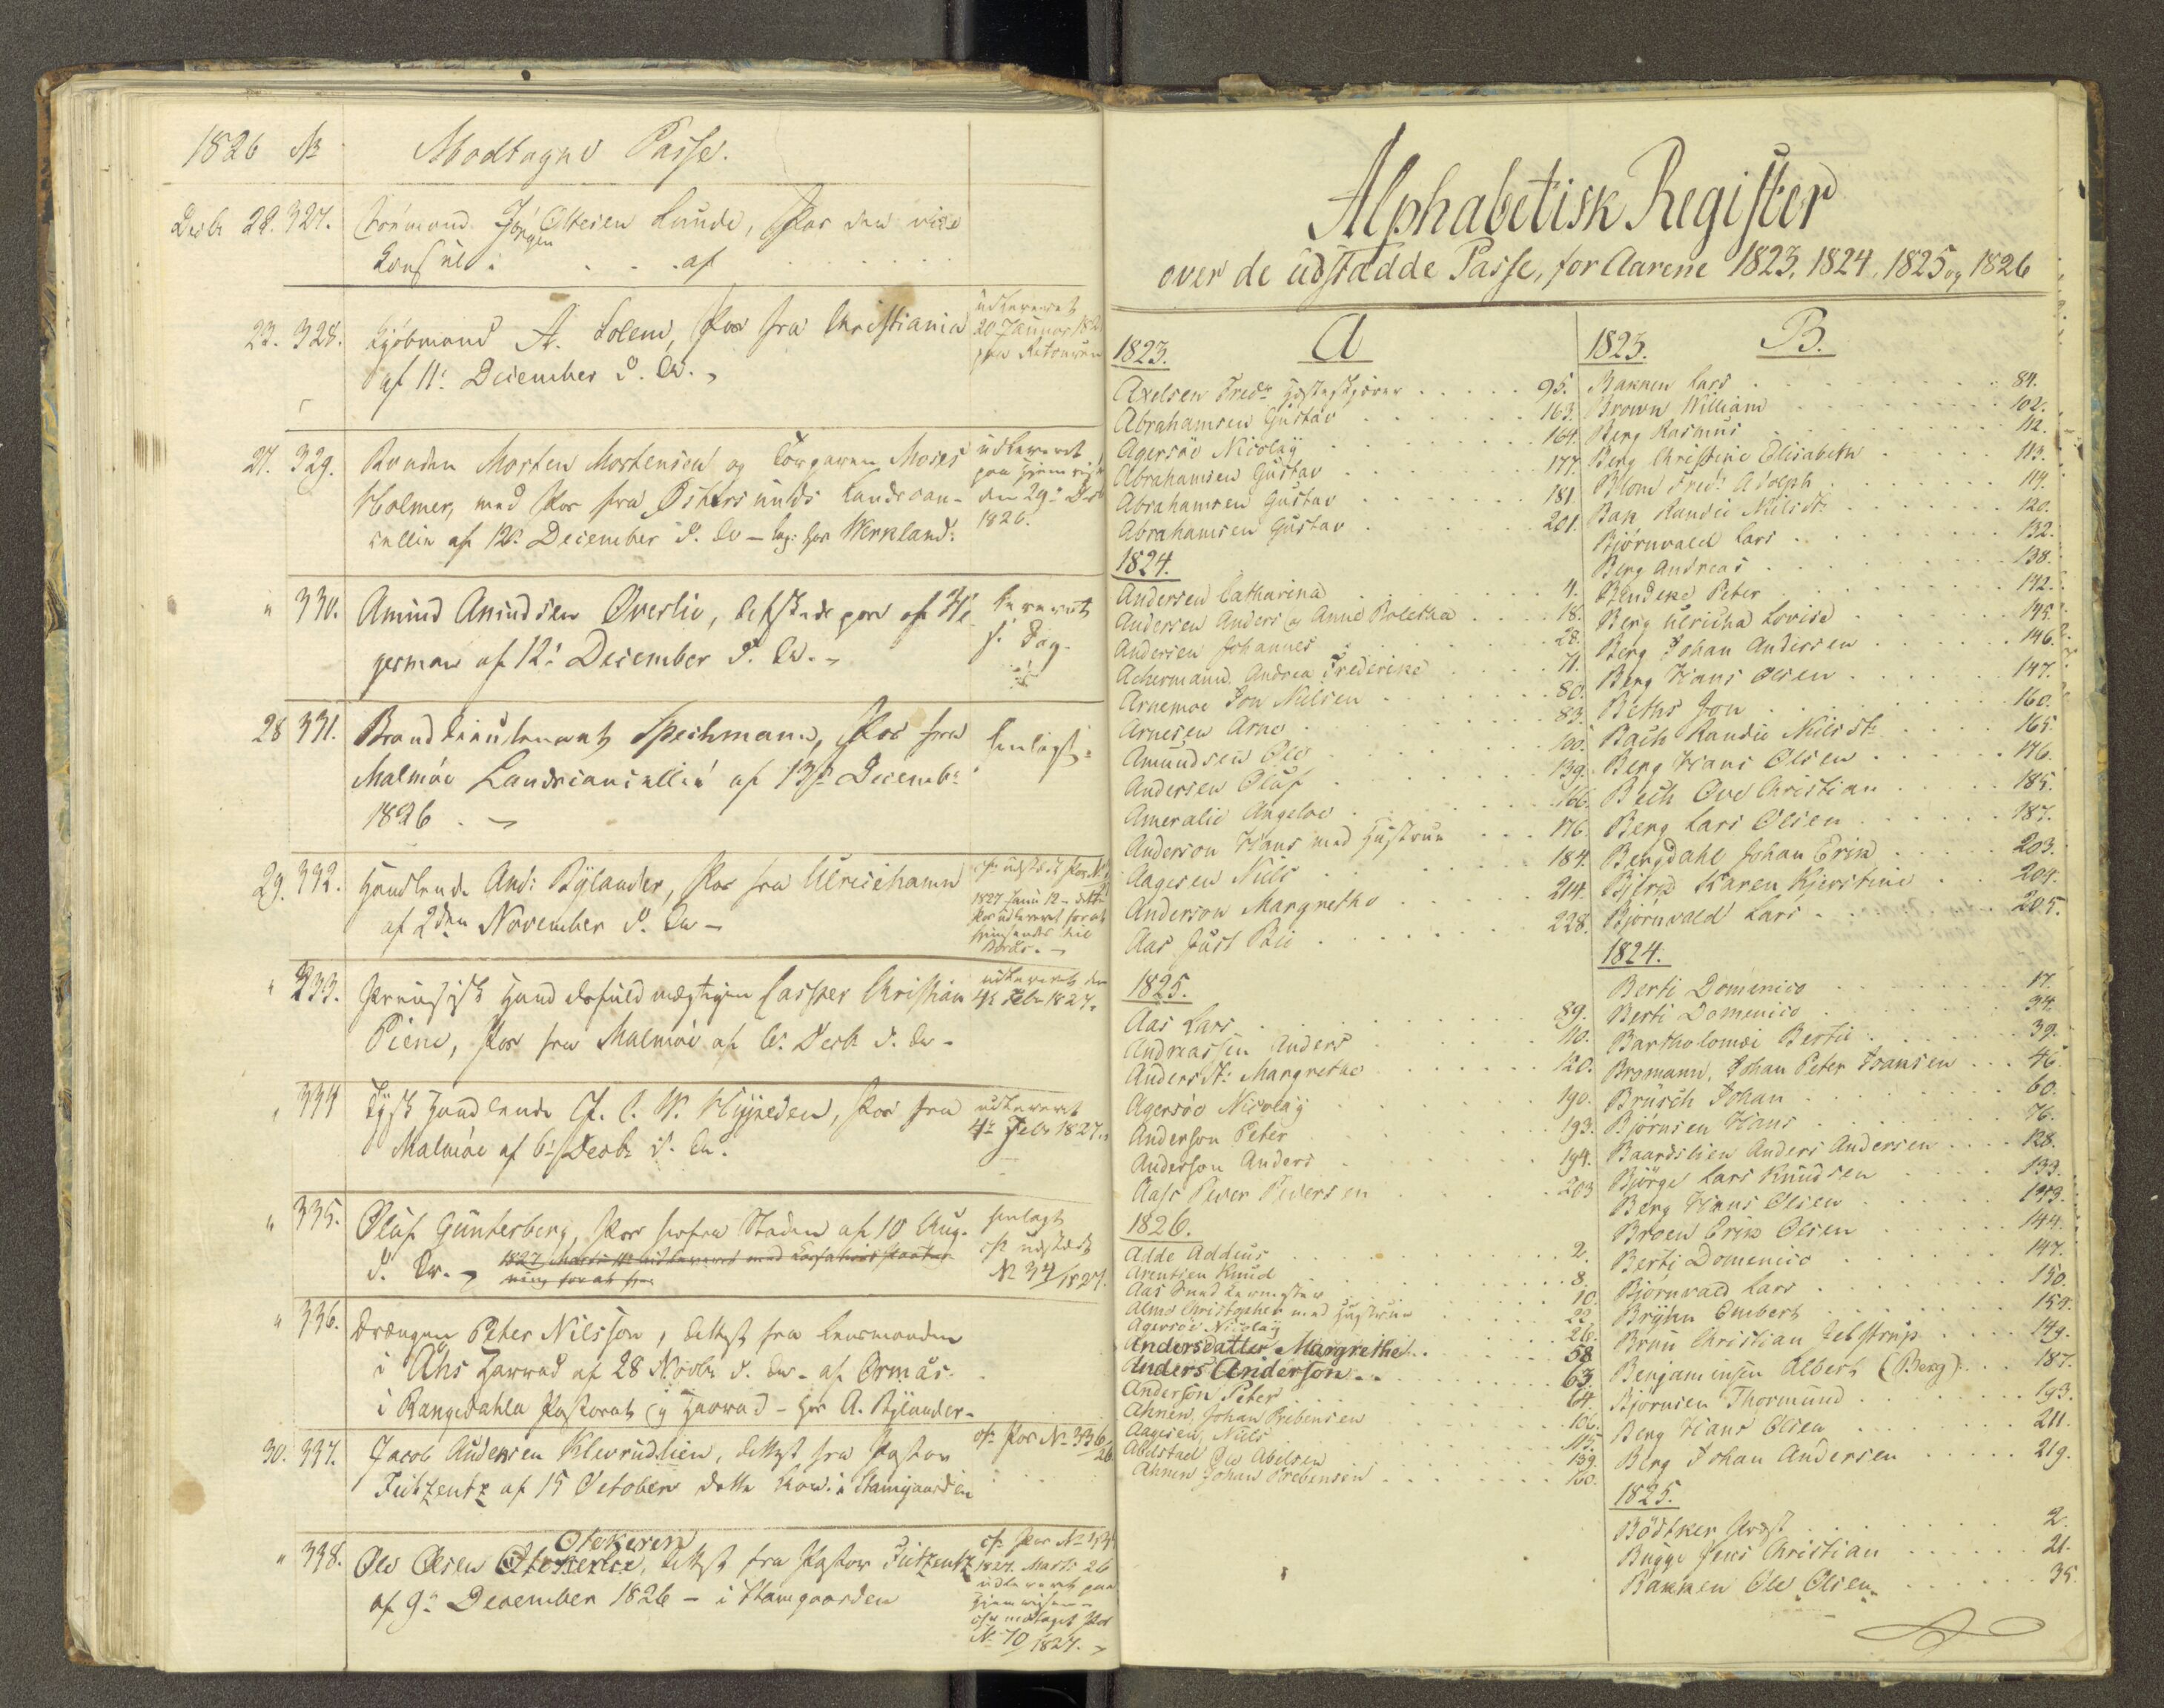 1826 No Modtagne Passe.
Decbr 22. 327. Jørgen Ottesen Lunde, Pas
af
23. 328. Kjøbmand A. Solem, Pas fra Christiania
af 11' December d. A.
udleveret
20 Januar
27. 329. Bonden Morten Mortensen og Torparen Moses
Holmer, med Pas fra Østersunds Landscan-
cellie af 12' December d. A. – log: hos Werkland.
udleveret
paa Hjemreise
den 29' Decb
1826.
" 330. Amund Amundsen Øverlie,
af 12' December d. A.
leveret
s. Dag
28 331. Brandlieutenant Speckmann, Pas fra
Malmöe Landscancellie af 13de Decembr
1826
henlagt
29. 332. Handlende And: Bylander, Pas fra Ulricehamn
af 2den November d. A.
1827 Janu 12
333. Preussisk Handelsfuldmægtigen Casper Christian
Piene, Pas fra Malmöe af 6. Decb d. A.
udleveret den
4de Febr 1827.
" 334 Tysk Handlende C. W. Pas fra
Malmöe af 6' Decbr d. A.
udleveret
4de Febr 1827.
" 335. Oluf Günterberg, Pas herfra Staden af 10 Aug.
d. A.
henlagt
cfr udstædt
N 34/1827.
" 336. Drængen Peter Nilsson, Attest fra Lensmanden
i Ahs Harrad af 28 Novbr d. A. af Ormås
i Rångedahla Pastorat og Harrad – hos A. Bylander
30. 337. Jacob Andersen Klevrudlien, Attest fra Pastor
Tützentz af 15 October dette Aar. i Stamgaarden
cfr Pas No 336/26
" 338. Ole Olsen Olekeren, Attest fra Pastor Tützentz
af 9' December 1826 – i Stamgaarden
1827. Marts 26
udleveret paa
Hjemreisen
cfr modtaget Pas
N. 70/1827.
Alphabetisk Register
over de udstædde Passe, for Aarene 1823, 1824, 1825 og 1826
1823. A
Axelsen Fredr 95.
Abrahamsen Gustav 163.
Agersöe Nicolay 164.
Abrahamsen Gustav 177.
Abrahamsen Gustav 181.
Abrahamsen Gustav 201.
1824.
Andersen Catharina 4.
Andersen Anders og Anne Bolethea 18.
Andersen Johannes 28.
Achermand, Andrea Frederike 71.
Arnemoe Jon Nielsen 80.
Arnesen Arne 83.
Amundsen Ole 100.
Andersen Oluf 139.
Ameralie Angeloe 166.
Anderson Hans med Hustrue 176.
Aagesen Niels 184.
Anderson Margrethe 214.
Aas Just Bie 228.
1825.
Aas Lars 89.
Andreassen Anders 110.
Andersdr: Margrethe 120.
Agersöe Nicolay 190.
Anderson Peter 193.
Anderson Anders 194.
Aass Peder Pedersen 203
1826.
Alde Addeus 2.
Arentsen Knud 8.
Aas 10.
Alme Christopher med Hustrue 22.
Agersöe Nicolay 26.
Andersdatter Margrethe 58
Anders Anderson 63.
Anderson Peter 64.
Ahnen, Johan Prebensen 106.
Aagesen, Niels 115.
Abelstad Ole Abelsen 139.
Ahnen Johan Prebensen 160.
1823. B.
Bakken Lars 84.
Brown William 102.
Berg Rasmus 112.
Berg Christine Elisabeth 113.
Blom Fredr: Adolph 119.
Bak Randie Nilsdtr 120.
Bjørnvald Lars 132.
Berg Andreas 138.
Bendeke Peter 142.
Berg Ulricha Lovise 145.
Berg Johan Andersen 146.
Berg Hans Olsen 147.
Beths Jon 160.
Bach Randie Nilsdtr 165.
Berg Hans Olsen 176.
Bech Ove Christian 185.
Berg Lars Olsen 187.
Bergdahl Johan Erik 203.
Karen Kjerstine 204.
Bjørnvald Lars 205.
1824.
Berti Domenico 17.
Berti Domenico 34.
Bartholomæi Bertie 39.
Bromann, Johan Peter Fransen 46
Brusch Johan 60.
Bjørnsen Hans 76.
Baardslien Anders Andersen 128.
Bjørge Lars Knudsen 133.
Berg Hans Olsen 143.
Broen Erik Olsen 144.
Berti Domenico 147.
Bjørnvald Lars 150.
Bryhn Embert 159.
Brun Christian Jebstrup 149.
Benjaminsen Albert (Berg) 187.
Bjørnsen Thormund 193.
Berg Hans Olsen 211.
Berg Johan Andersen 219.
1825.
Bödtker 2.
Bugge Jens Christian 21.
Bakken Ole Olsen 35.